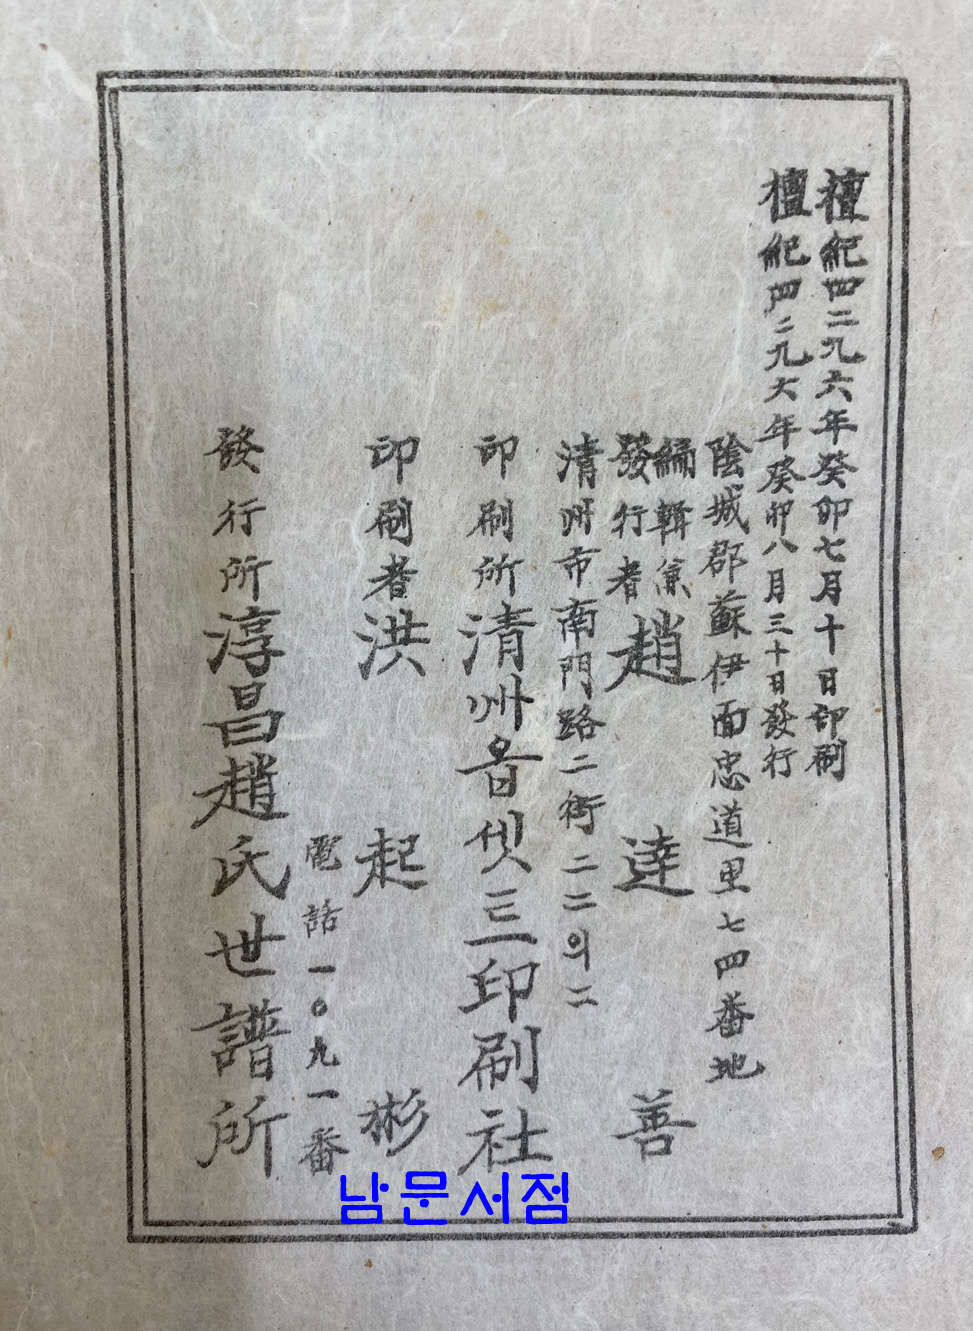 檀紀四二九六年癸卯七月十日印刷
檀紀四二九六年癸卯八月三十日發行
陰城郡蘇伊面忠道里七四番地
編輯兼
發行者 趙達善
淸州市南門路二街二二의二
印刷所 淸州音성三印刷社
印刷者 洪起彬
電話一〇九一番
發行所 淳昌趙氏世譜所
남문서점